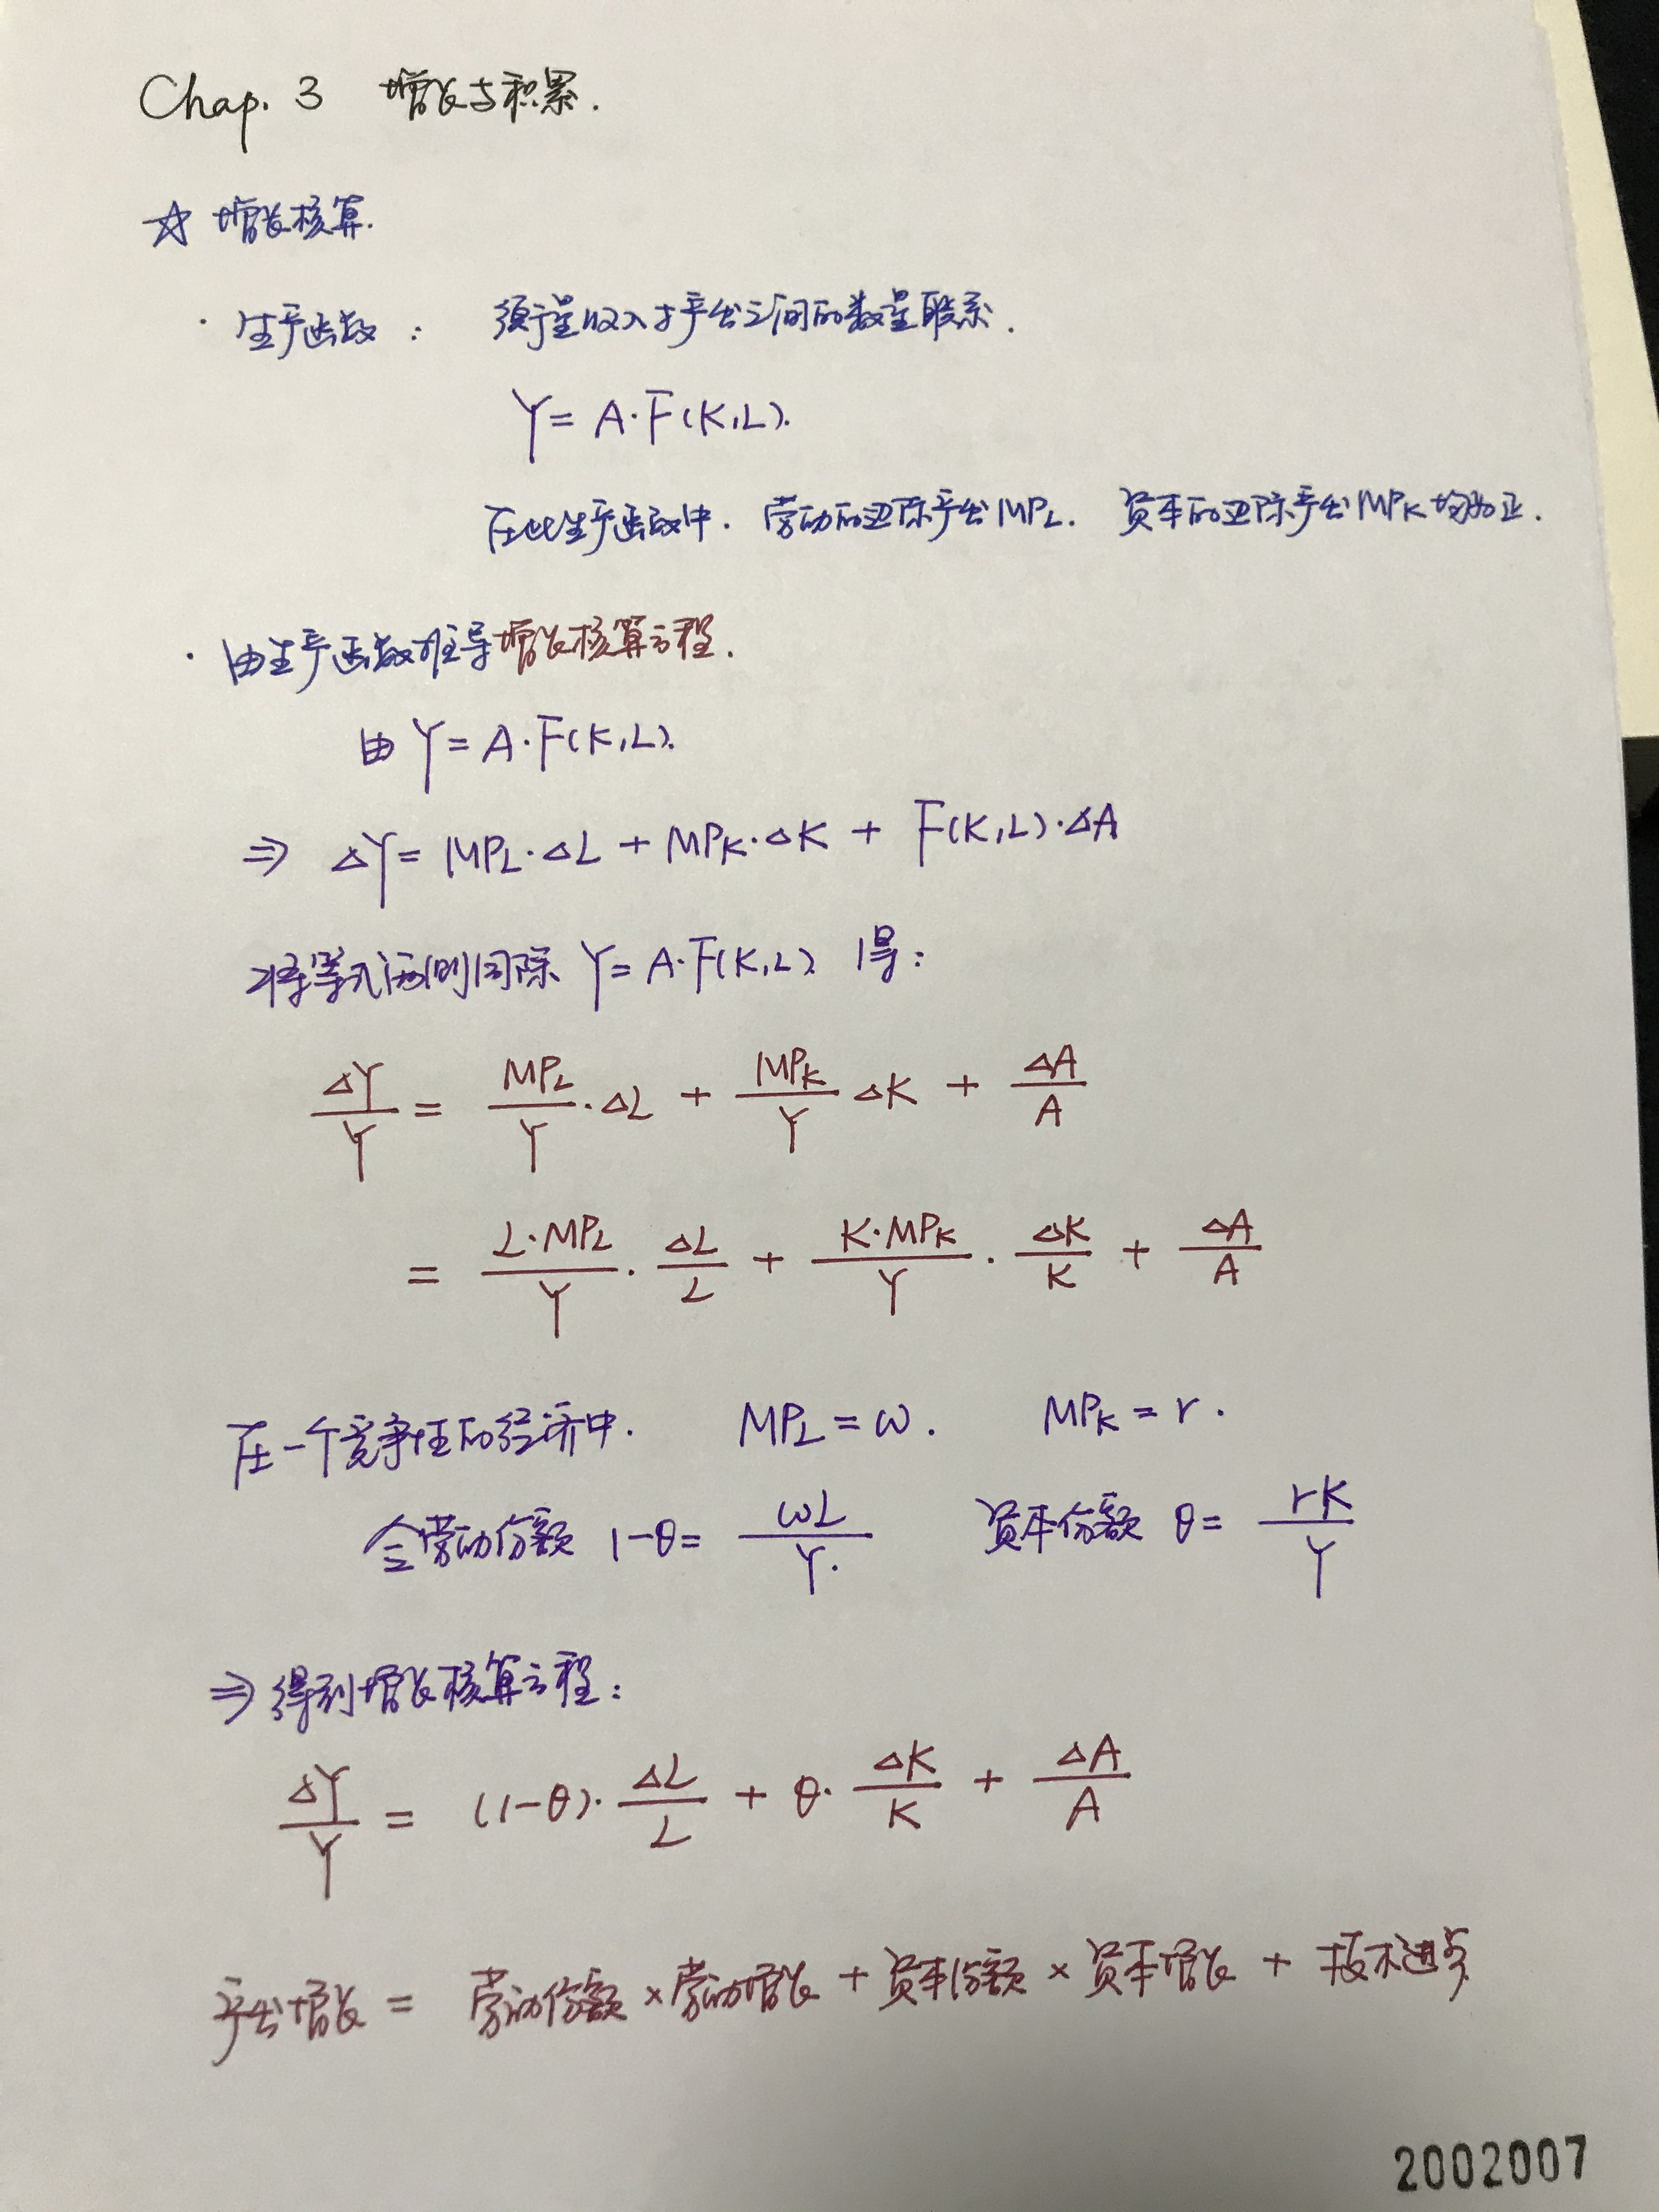 Chap. 3 增长与积累.
☆ 增长核算.
· 生产函数: 须于量收入与产出之间的数量联系.
Y = A·F(K,L).
在此生产函数中. 劳动的边际产出MPL. 资本的边际产出MPK均为正.
· 由生产函数推导增长核算方程.
由 Y = A·F(K,L).
⇒ ΔY = MPL·ΔL + MPK·ΔK + F(K,L)·ΔA
将等式两侧同除 Y = A·F(K,L) 得:
ΔY/Y = MPL/Y·ΔL + MPK/Y ΔK + ΔA/A
= L·MPL/Y · ΔL/L + K·MPK/Y · ΔK/K + ΔA/A
在一个竞争性的经济中. MPL = ω. MPK = r.
令劳动份额 1-θ = ωL/Y. 资本份额 θ = rK/Y
⇒ 得到增长核算方程:
ΔY/Y = (1-θ)·ΔL/L + θ·ΔK/K + ΔA/A
产出增长 = 劳动份额 × 劳动增长 + 资本份额 × 资本增长 + 技术进步
2002007